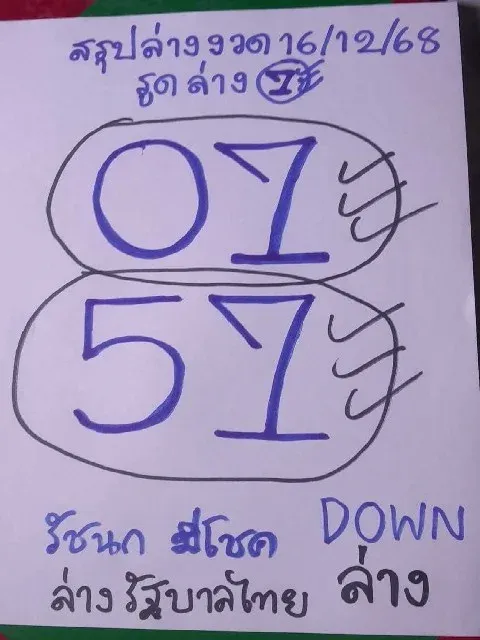 สรุปล่างงวด 16/12/68
รูดล่าง 1
01
51
รัชนก มีโชค DOWN
ล่างรัฐบาลไทย ล่าง